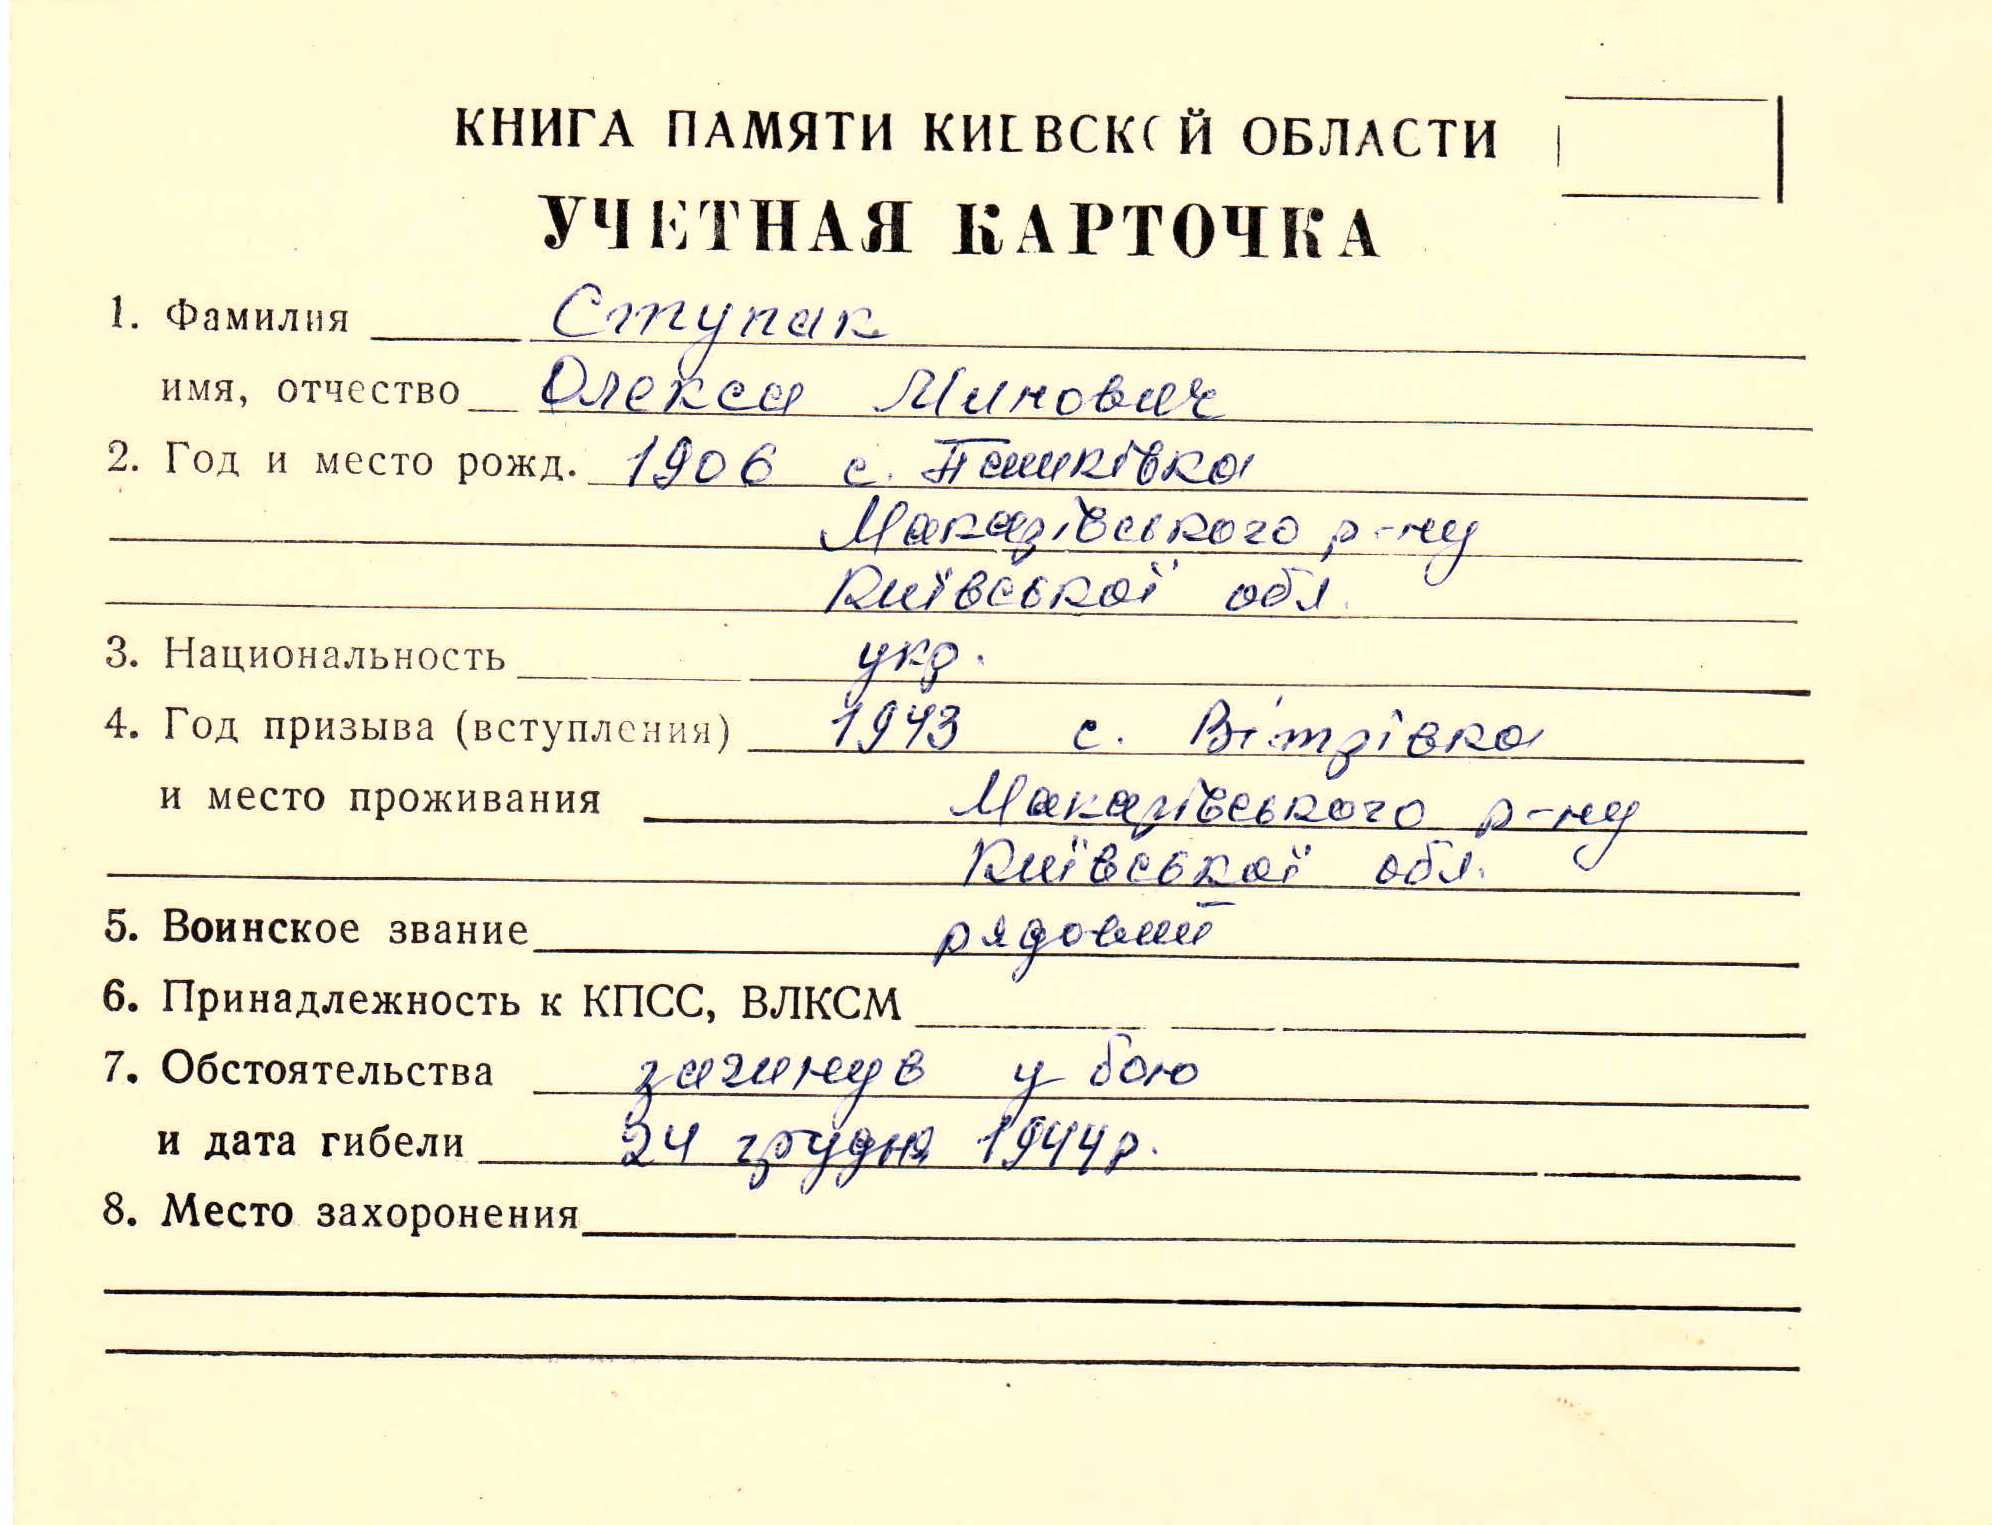 КНИГА ПАМЯТИ КИЕВСКОЙ ОБЛАСТИ
УЧЕТНАЯ КАРТОЧКА
1. Фамилия Ступак
имя, отчество Олекса Минович
2. Год и место рожд. 1906 с. Пашківка
Макарівського р-ну
Київської обл.
3. Национальность укр.
4. Год призыва (вступления) 1943 с. Вітрівка
и место проживания Макарівського р-ну
Київської обл.
5. Воинское звание рядовий
6. Принадлежность к КПСС, ВЛКСМ
7. Обстоятельства загинув у бою
и дата гибели 24 грудня 1944р.
8. Место захоронения